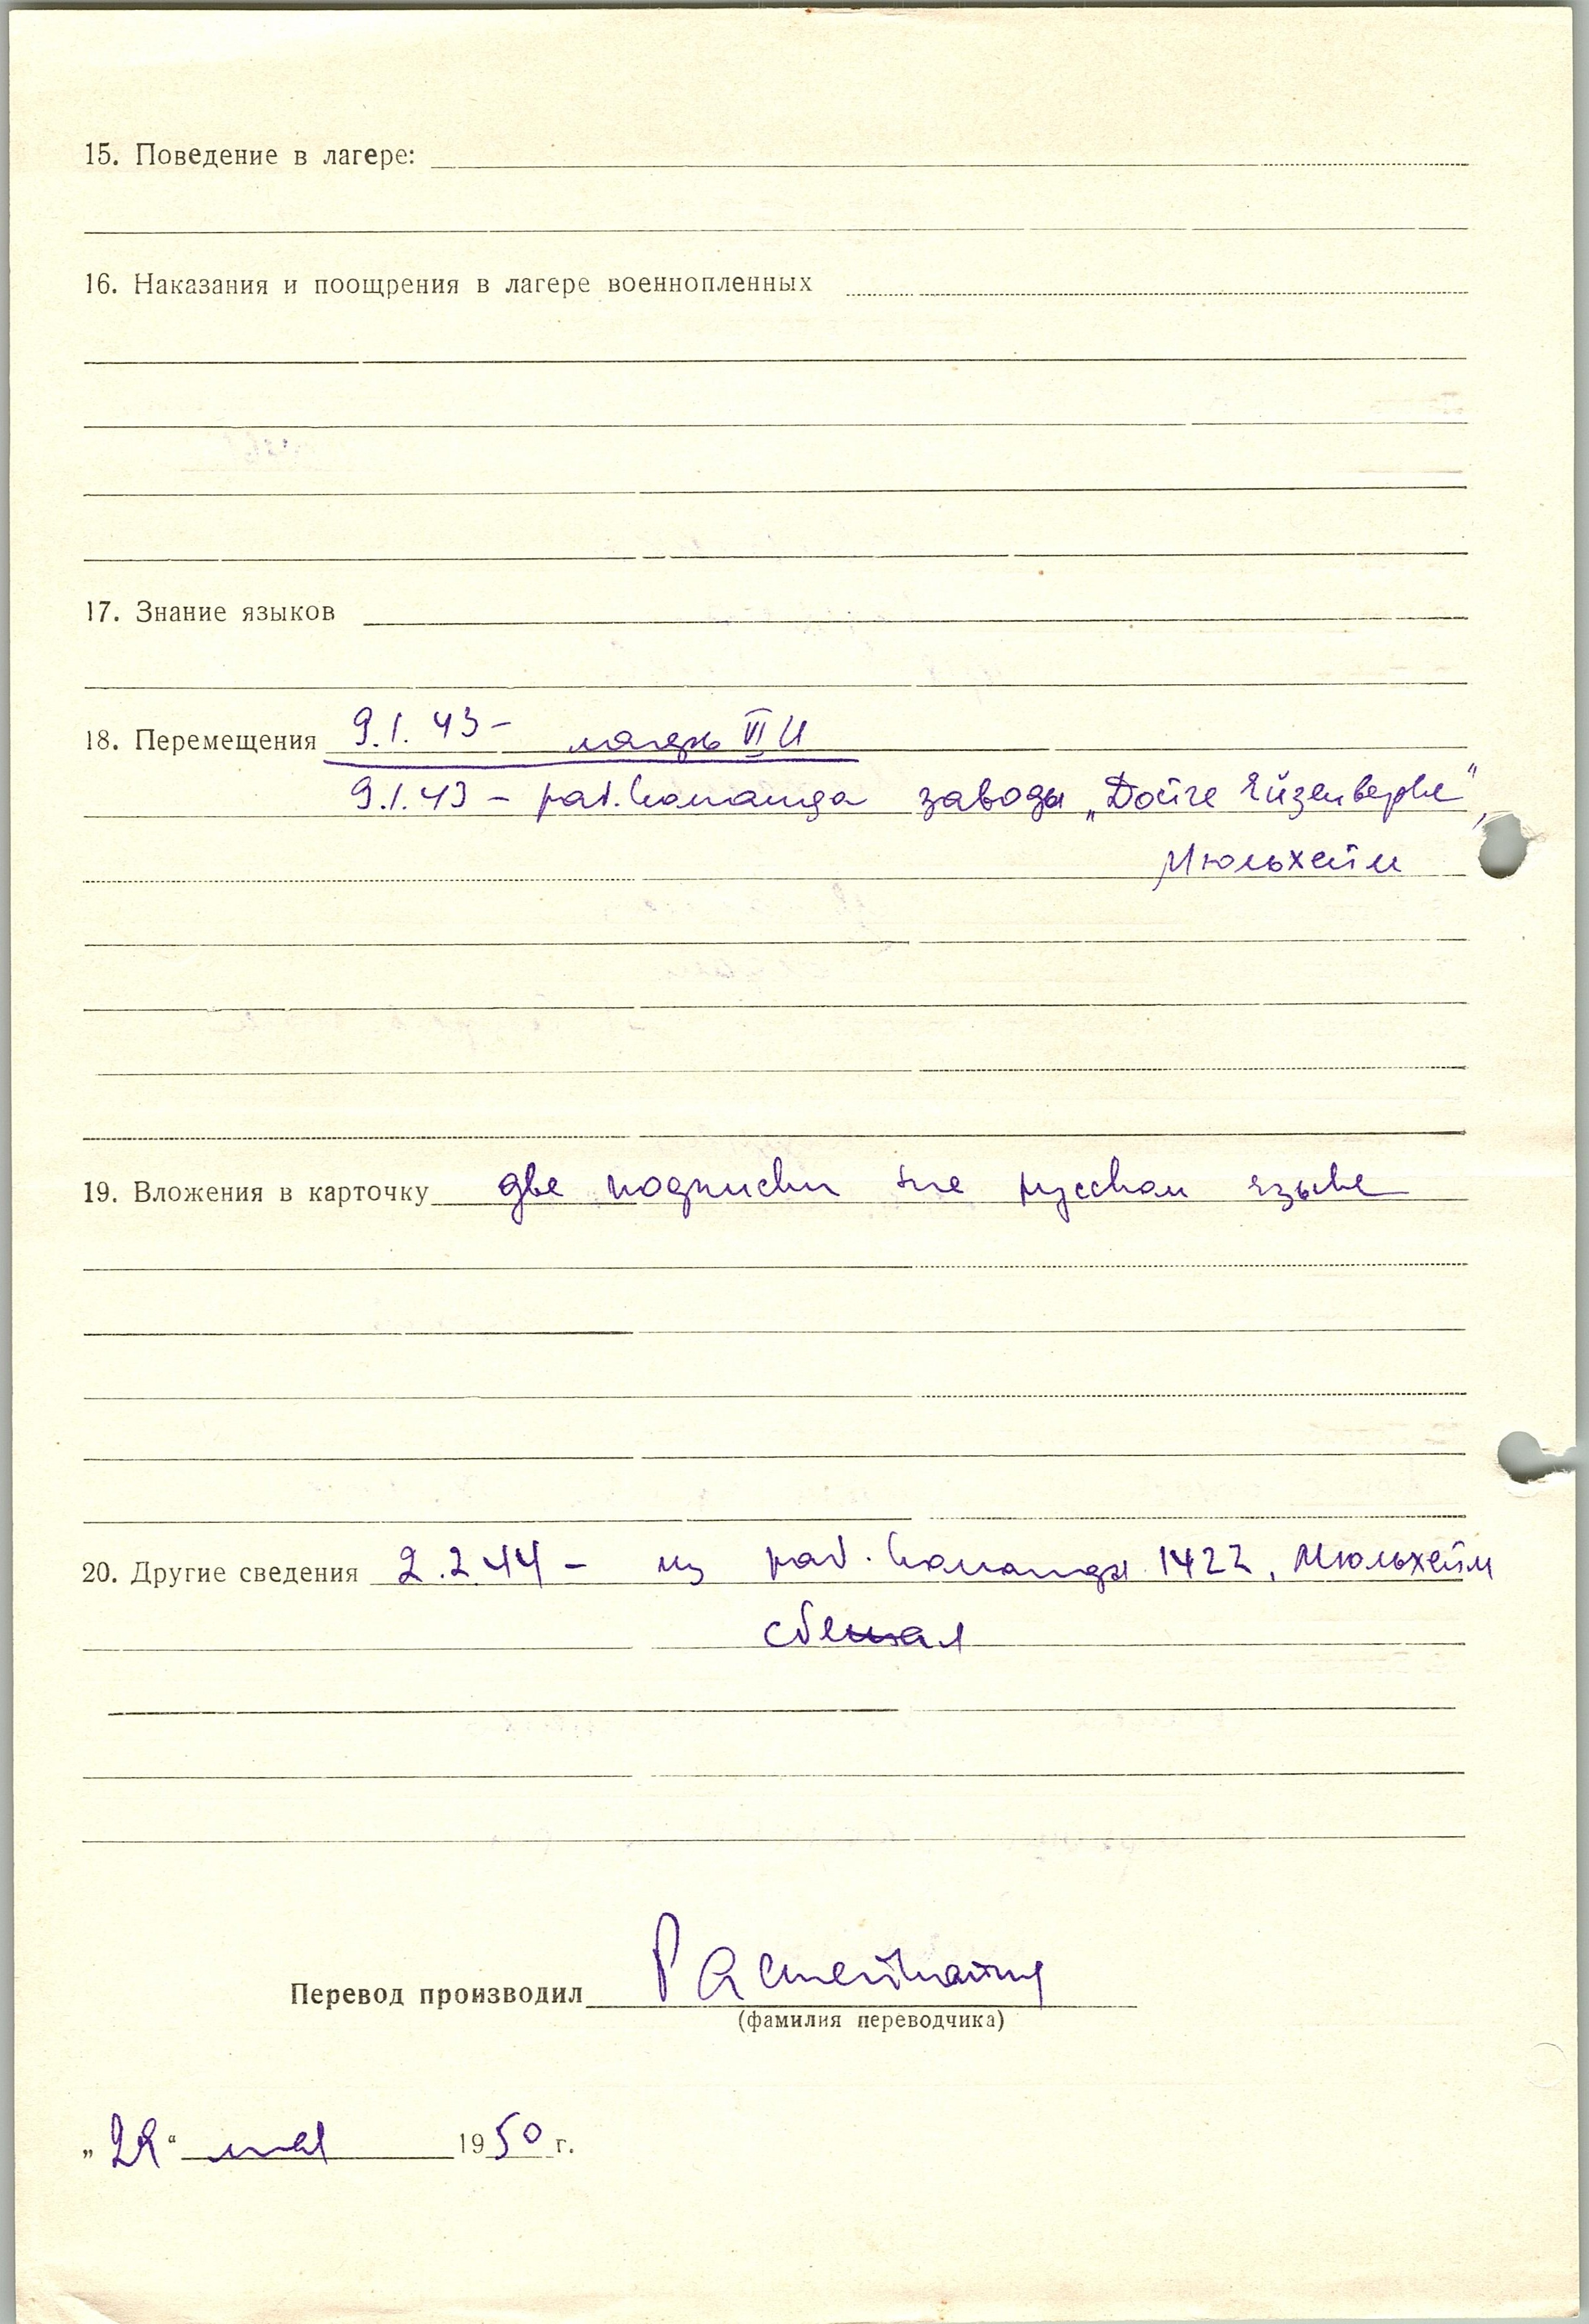 15. Поведение в лагере:
16. Наказания и поощрения в лагере военнопленных
17. Знание языков
18. Перемещения 9.1.43 – лагерь VI
9.1.43 – раб. команда заводы „Дойче Ейзенверке",
Мюльхейм
19. Вложения в карточку две подписки на русском языке
20. Другие сведения 2.2.44 – из раб. команды 1422, Мюльхейм
сбежал
Перевод производил
(фамилия переводчика)
мая 1950 г.